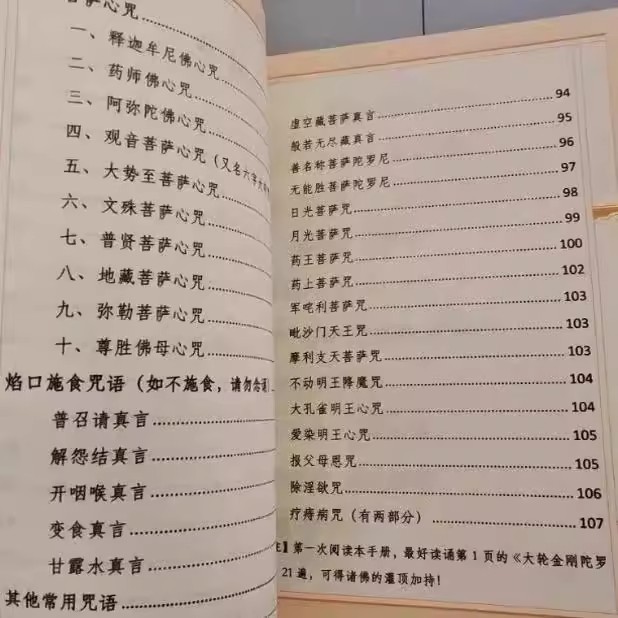 菩萨心咒
一、释迦牟尼佛心咒
二、药师佛心咒
三、阿弥陀佛心咒
四、观音菩萨心咒（又名六字大
五、大势至菩萨心咒
六、文殊菩萨心咒
七、普贤菩萨心咒
八、地藏菩萨心咒
九、弥勒菩萨心咒
十、尊胜佛母心咒
焰口施食咒语（如不施食，请勿念诵）
普召请真言
解怨结真言
开咽喉真言
变食真言
甘露水真言
其他常用咒语
虚空藏菩萨真言 94
般若无尽藏真言 95
善名称菩萨陀罗尼 96
无能胜菩萨陀罗尼 97
日光菩萨咒 98
月光菩萨咒 99
药王菩萨咒 100
药上菩萨咒 102
军咤利菩萨咒 103
毗沙门天王咒 103
摩利支天菩萨咒 103
不动明王降魔咒 104
大孔雀明王心咒 104
爱染明王心咒 105
报父母恩咒 105
除淫欲咒 106
疗痔病咒（有两部分） 107
】第一次阅读本手册，最好读诵第1页的《大轮金刚陀罗
21遍，可得诸佛的灌顶加持！